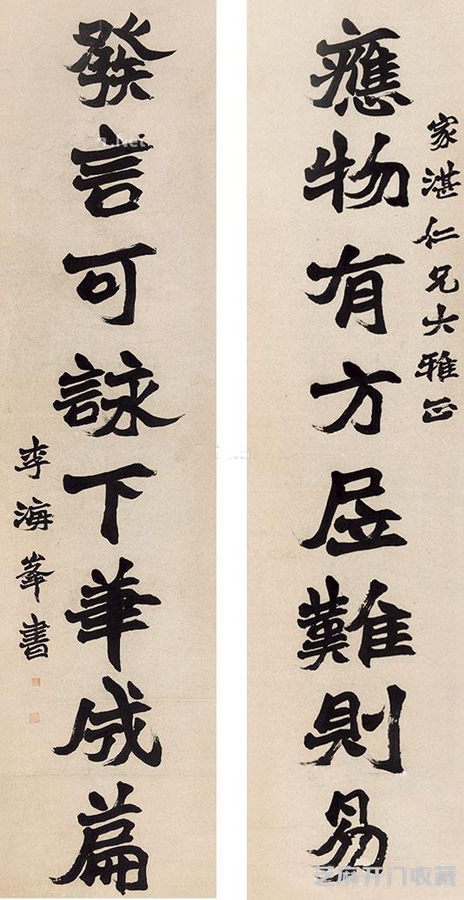 家湛仁兄大雅正
應物有方居難則易
發言可詠下筆成篇
李海峯書
芝麻开门收藏